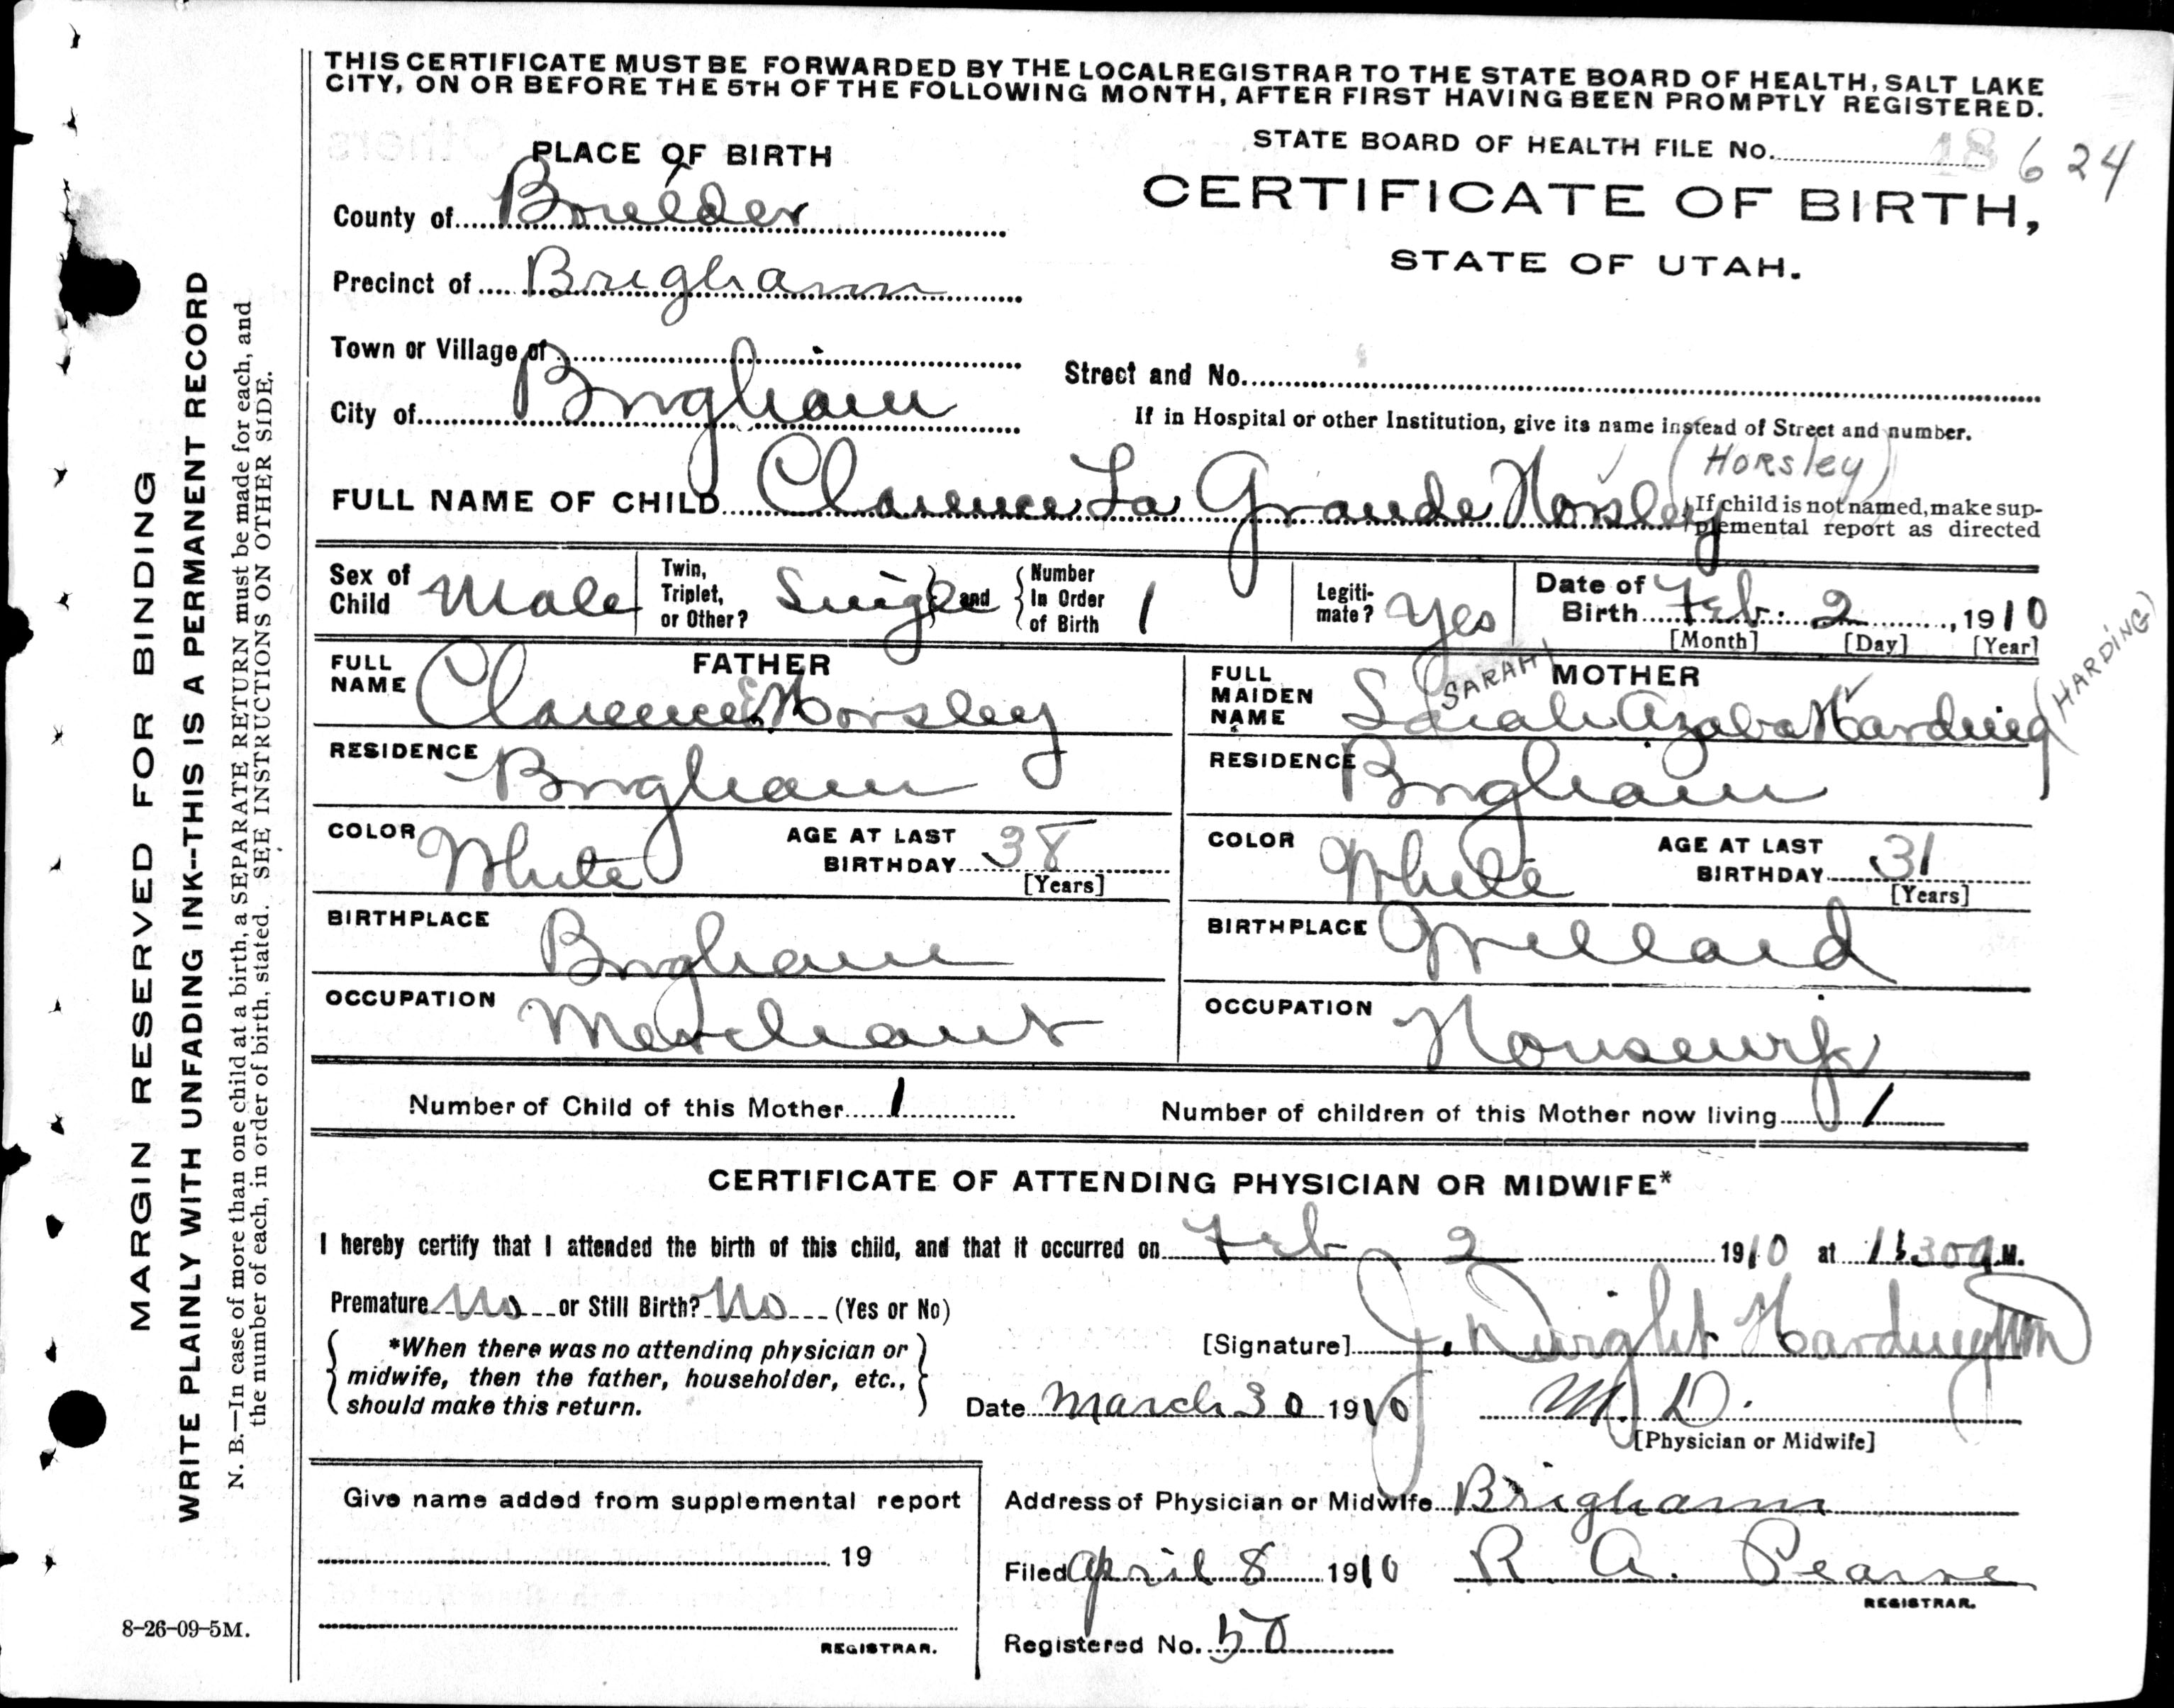 THIS CERTIFICATE MUST BE FORWARDED BY THE LOCAL REGISTRAR TO THE STATE BOARD OF HEALTH, SALT LAKE
CITY, ON OR BEFORE THE 5TH OF THE FOLLOWING MONTH, AFTER FIRST HAVING BEEN PROMPTLY REGISTERED.
PLACE OF BIRTH
STATE BOARD OF HEALTH FILE No. 18 624
CERTIFICATE OF BIRTH,
STATE OF UTAH.
County of
Precinct of Brigham
Town or Village of
Street and No.
City of Brigham
If in Hospital or other Institution, give its name instead of Street and number.
(Horsley)
FULL NAME OF CHILD Clarence La Grande Horsley
If child is not named, make sup-
plemental report as directed
Sex of Child Male
Twin, Triplet, or Other? Single and Number In Order of Birth 1
Legiti-mate? Yes
Date of Birth Feb. 2, 1910
[Month] [Day] [Year]
FATHER
FULL NAME Clarence Horsley
RESIDENCE Brigham
COLOR White AGE AT LAST BIRTHDAY 38
[Years]
BIRTHPLACE Brigham
OCCUPATION Merchant
MOTHER
SARAH
FULL MAIDEN NAME Sarah Azaba Harding (HARDING)
RESIDENCE Brigham
COLOR White AGE AT LAST BIRTHDAY 31
[Years]
BIRTHPLACE Willard
OCCUPATION Housewife
Number of Child of this Mother 1 Number of children of this Mother now living 1
CERTIFICATE OF ATTENDING PHYSICIAN OR MIDWIFE*
I hereby certify that I attended the birth of this child, and that it occurred on Feb 2 1910 at 30 a M.
Premature No or Still Birth? No (Yes or No)
*When there was no attending physician or
midwife, then the father, householder, etc.,
should make this return.
[Signature] J. Dwight Harding
Date March 30 1910 M. D.
[Physician or Midwife]
Give name added from supplemental report
19
REGISTRAR.
Address of Physician or Midwife Brigham
Filed April 8 1910 R. A. Pearse
REGISTRAR.
Registered No. 50
8-26-09-5M.
MARGIN RESERVED FOR BINDING
WRITE PLAINLY WITH UNFADING INK--THIS IS A PERMANENT RECORD
N. B.—In case of more than one child at a birth, a SEPARATE RETURN must be made for each, and
the number of each, in order of birth, stated. SEE INSTRUCTIONS ON OTHER SIDE.